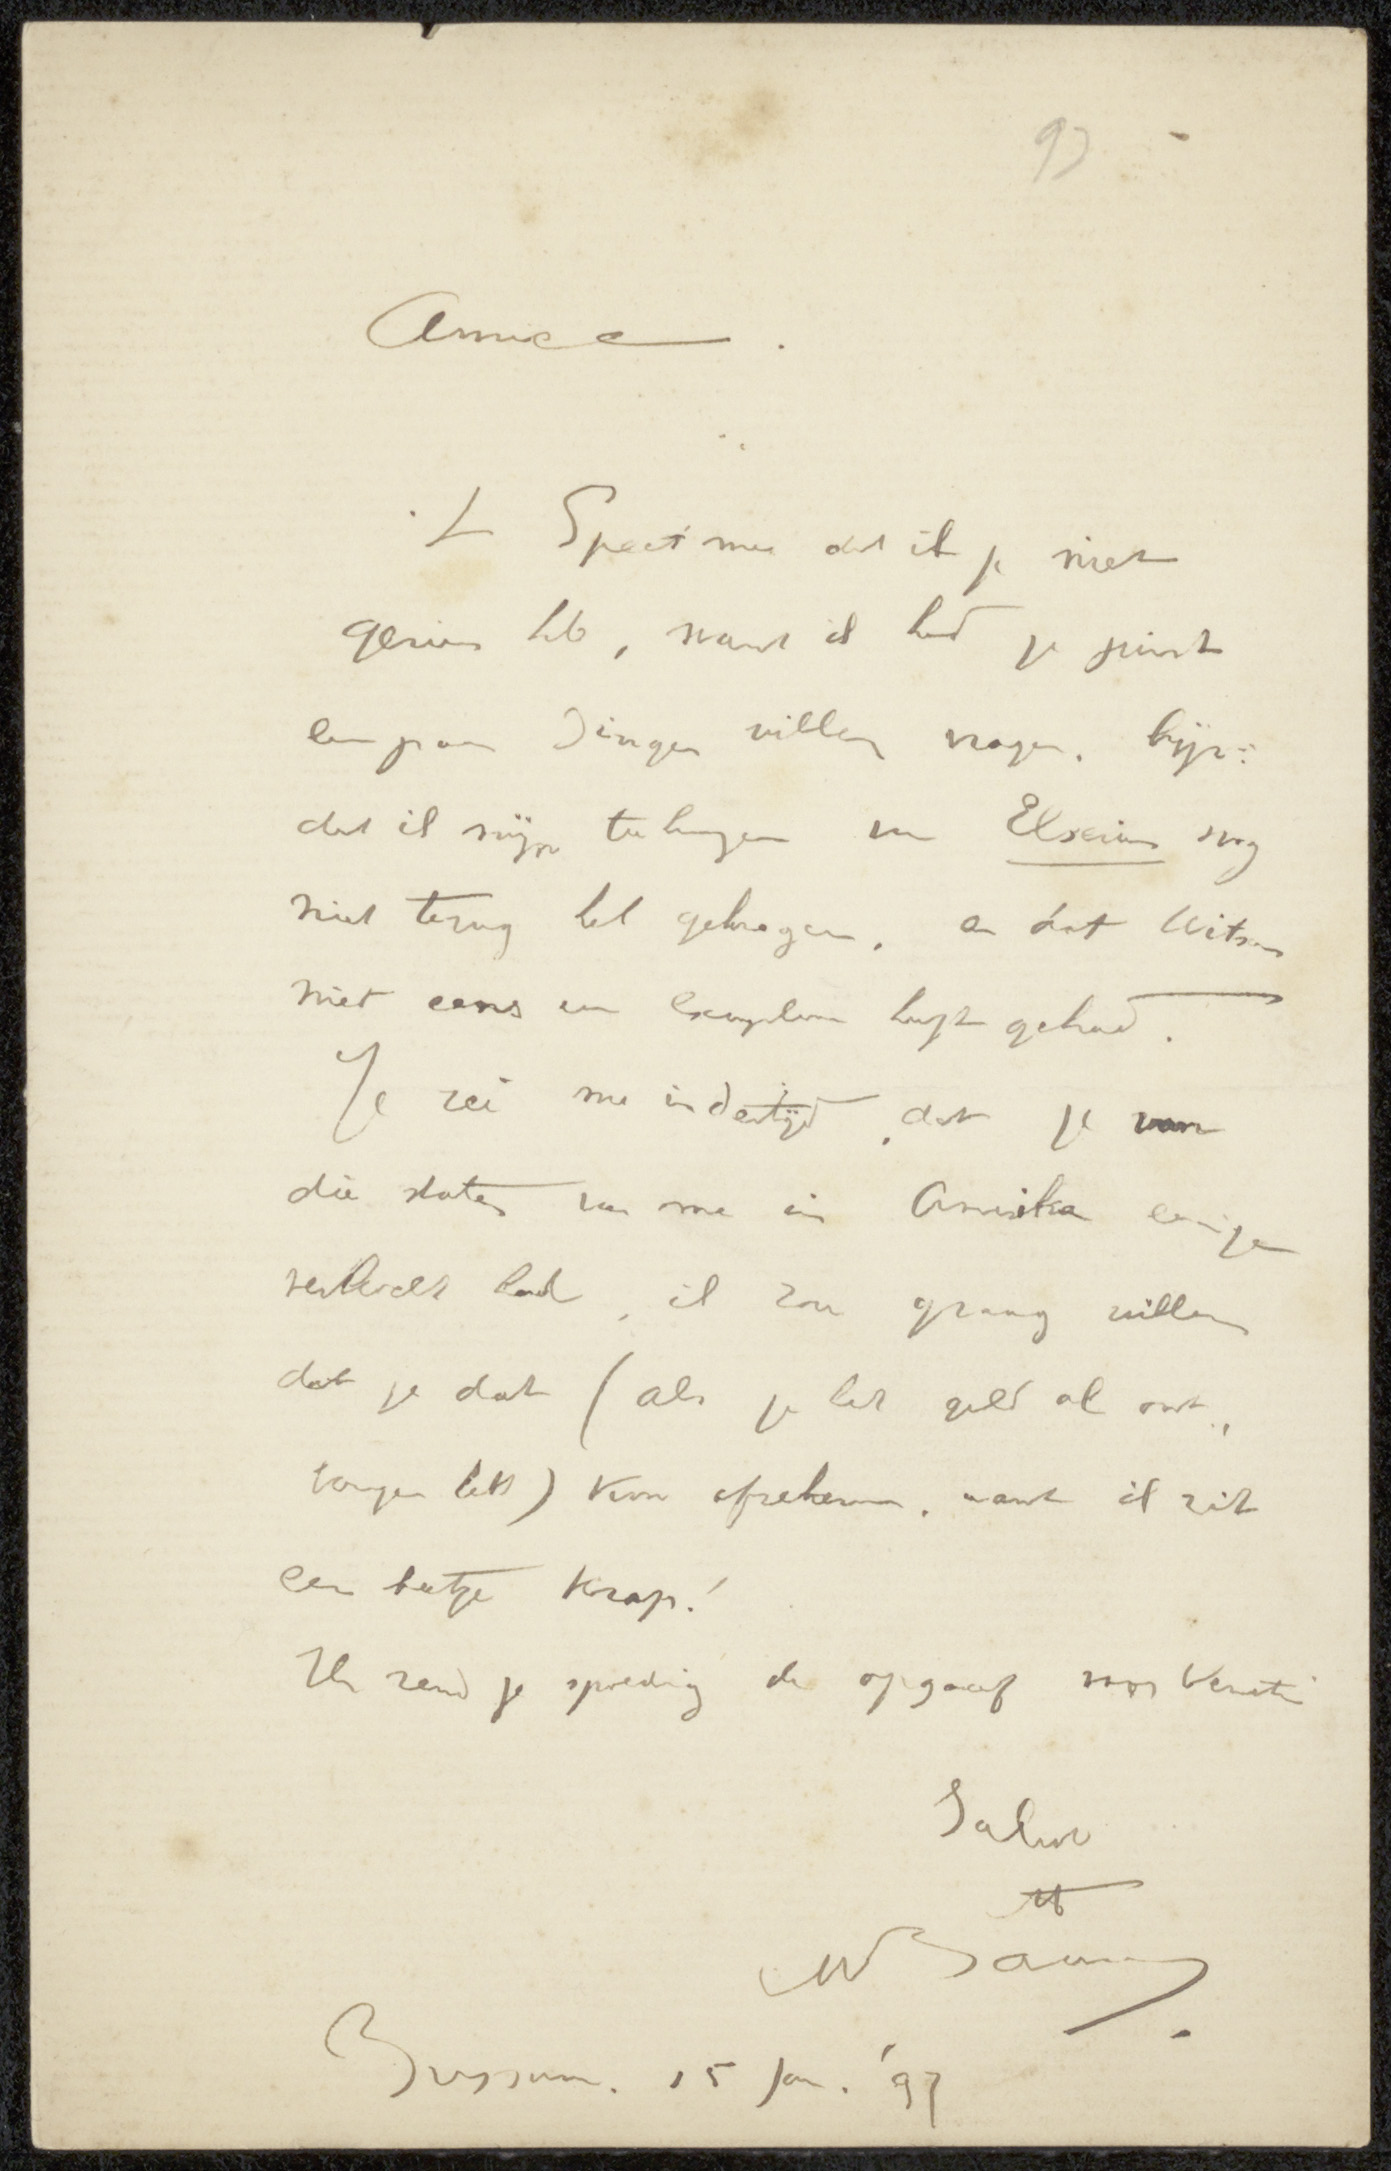 97
Amice.
't Speet me dat ik je niet
gezien heb, want ik had je juist
een paar dingen willen vragen. bijv:
dat ik mijn teekeningen van Elsevier nog
niet terug heb gekregen, en dat Witsen
niet eens een exemplaar heeft gehad.
Je zei me indertijd, dat je van
die platen van me in Amerika eenige
verkocht had, ik zou graag willen
dat je dat (als je het geld al ont„
vangen hebt) kon afrekenen, want ik zit
een beetje krap!
Ik zend je spoedig de opgaaf voor Venetië
Salut
tt
MBauer.
Bussum. 15 Jan. '97